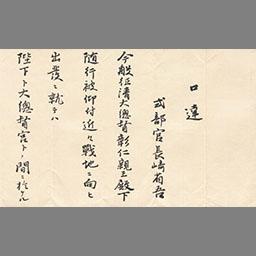 口達
式部官長崎省吾
今般征清大總督彰仁親王殿下
随行被仰付近々戰地ニ向ヒ
出發ニ就テハ
陛下ト大總督宮トノ間ニ於ケル